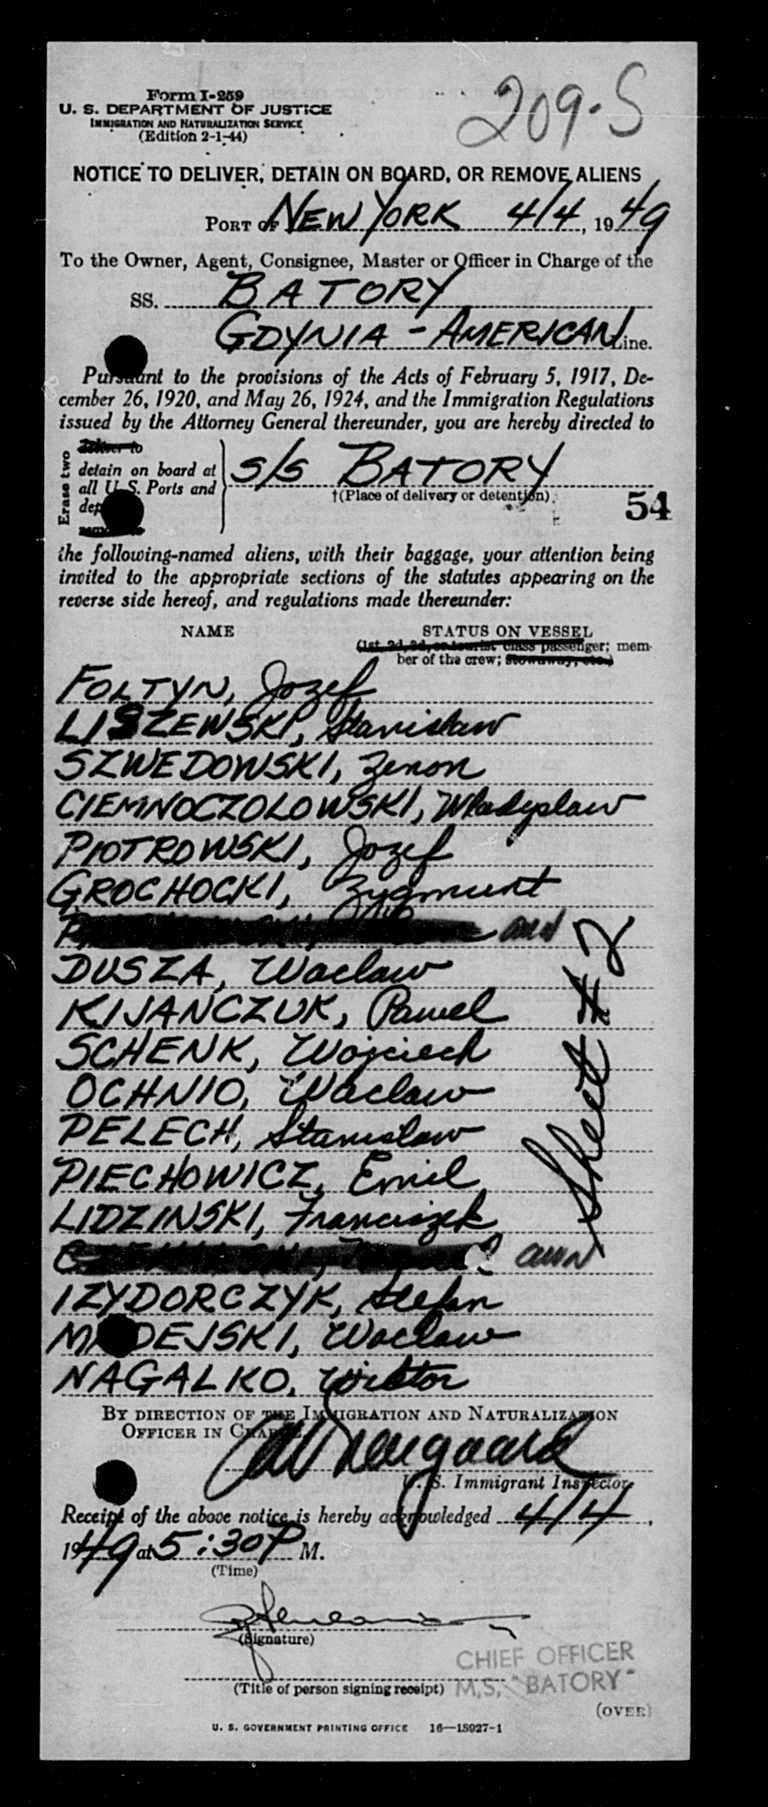 209-S
Form I-259
U. S. DEPARTMENT OF JUSTICE
IMMIGRATION AND NATURALIZATION SERVICE
(Edition 2-1-44)
NOTICE TO DELIVER, DETAIN ON BOARD, OR REMOVE ALIENS
PORT OF NEW YORK 4/4, 1949
To the Owner, Agent, Consignee, Master or Officer in Charge of the
SS. BATORY
GDYNIA - AMERICAN Line.
Pursuant to the provisions of the Acts of February 5, 1917, De-
cember 26, 1920, and May 26, 1924, and the Immigration Regulations
issued by the Attorney General thereunder, you are hereby directed to
Erase two
deliver to
detain on board at
all U. S. Ports and
S/S BATORY
†(Place of delivery or detention)
54
the following-named aliens, with their baggage, your attention being
invited to the appropriate sections of the statutes appearing on the
reverse side hereof, and regulations made thereunder:
NAME STATUS ON VESSEL
(1st, 2d, 3d, or tourist class passenger; mem-
ber of the crew; stowaway, etc.)
FOLTYN, Jozef
LISZEWSKI, Stanislaw
SZWEDOWSKI, Zenon
CIEMNOCZOLOWSKI, Wladyslaw
PIOTROWSKI, Jozef
GROCHOCKI, Zygmunt
DUSZA, Waclaw
KIJANCZUK, Pawel
SCHENK, Wojciech
OCHNIO, Waclaw
PELECH, Stanislaw
PIECHOWICZ, Emil
LIDZINSKI, Franciszek
IZYDORCZYK, Stefan
M DEJSKI, Waclaw
NAGALKO, Wiktor
Sheet #2
BY DIRECTION OF THE IMMIGRATION AND NATURALIZATION
OFFICER IN CHARGE
U. S. Immigrant Inspector
Receipt of the above notice is hereby acknowledged 4/4,
1949 at 5:30 P M.
(Time)
(Signature)
CHIEF OFFICER
M.S. "BATORY"
(Title of person signing receipt)
(OVER)
U. S. GOVERNMENT PRINTING OFFICE 16—15927-1